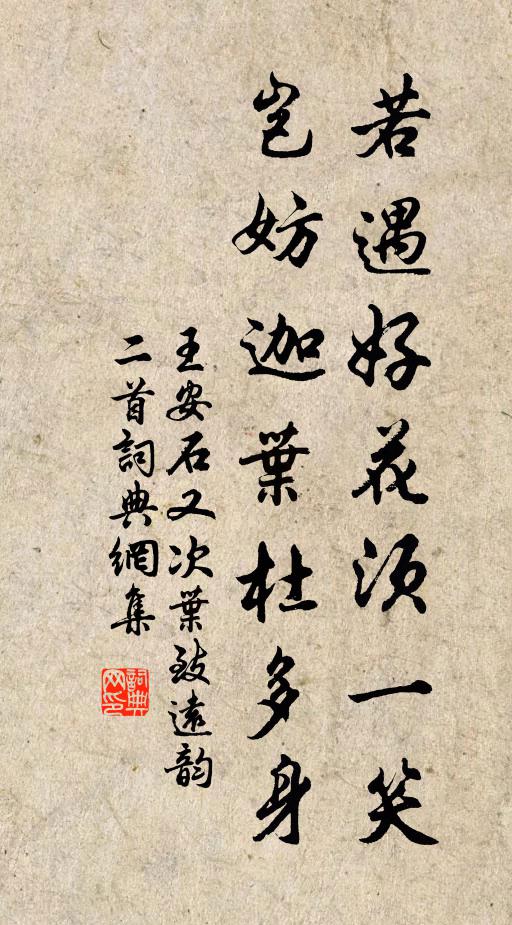 若遇好花須一笑
豈妨迦葉杜多身
王安石又次葉致遠韵
二首詞典網集
詞典网印